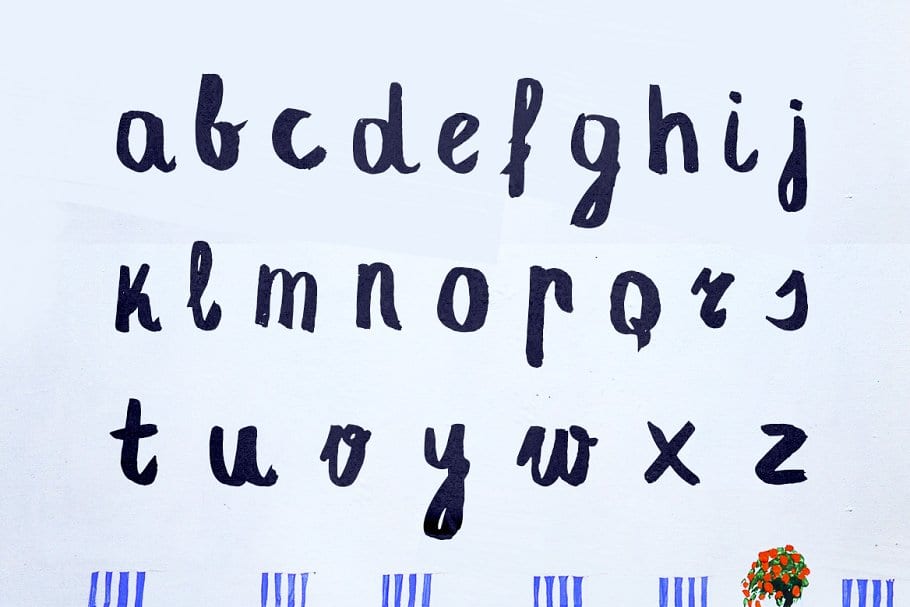 abcdefghij
klmnopqrs
tuvywxz